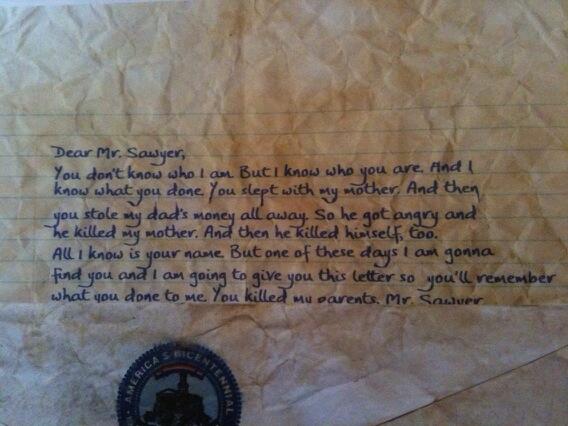 Dear Mr. Sawyer,
You don't know who I am. But I know who you are. And I
know what you done. You slept with my mother. And then
you stole my dad's money all away. So he got angry and
he killed my mother. And then he killed himself, too.
All I know is your name. But one of these days I am gonna
find you and I am going to give you this letter so you'll remember
what you done to me. You killed my parents, Mr. Sawyer
AMERICA'S BICENTENNIAL